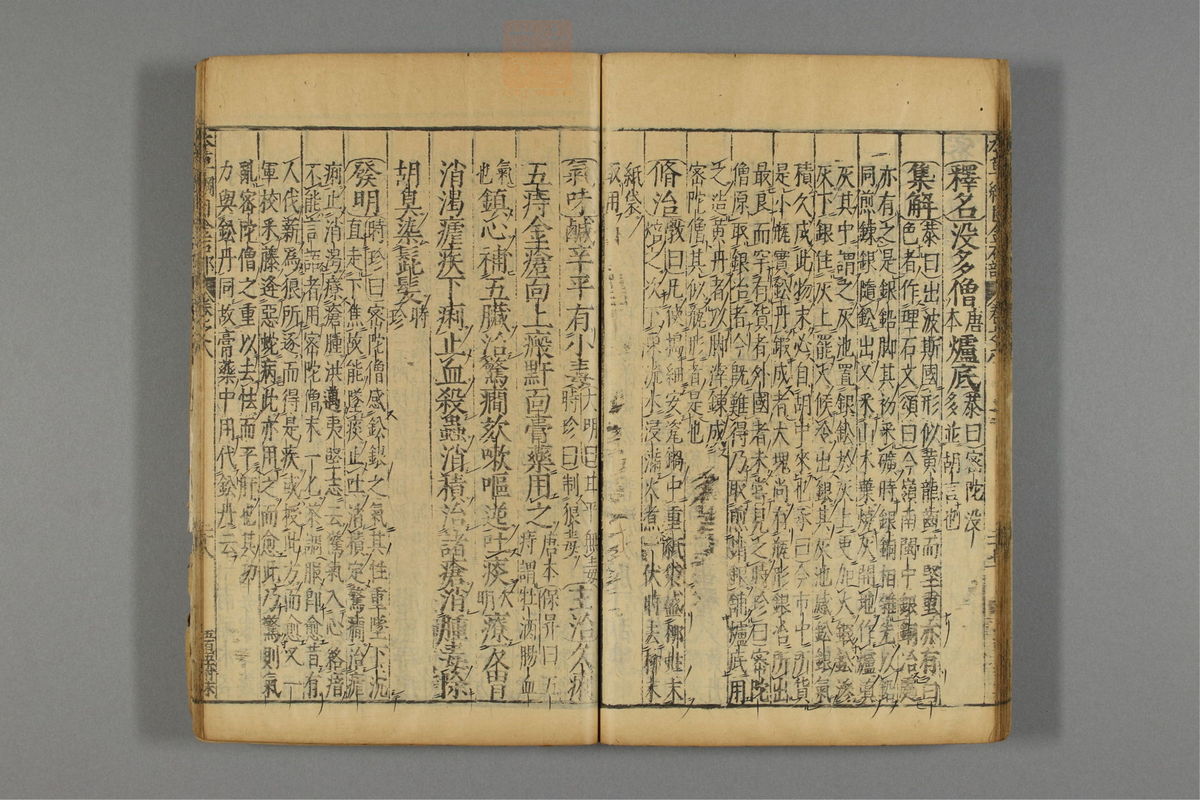 釋名没多僧唐本爐底恭曰密陀没多並胡言也
集解恭曰出波斯國形似黄龍齒而堅重亦有白色者作理石文頌曰今嶺南閩中銀銅冶處
亦有之是銀鉛脚其初采礦時銀銅相雜先以鉛
同煎鍊銀隨鉛出又采山木葉燒灰開地作爐填
灰其中謂之灰池置銀鉛於灰上更加火鍛鉛滲
灰下銀住灰上罷火候冷出銀其灰池感鉛銀氣
積久成此物未必自胡中來也承曰今市中所貨
是小瓶實鉛丹鍛成者大塊尚有瓶形銀冶所出
最良而罕有貨者外國者未嘗見之時珍曰密陀
僧原取銀冶者今既難得乃取煎銷銀鋪爐底用
之造黄丹者以脚滓鍊成
密陀僧其似瓶形者是也
脩治斆曰凡使搗細安瓷鍋中重紙袋盛柳蚛末焙之次下東流水浸滿火煮一伏時去柳末
紙袋
取用
氣味鹹辛平有小毒大明曰甘平時珍曰制狼毒主治久痢
五痔金瘡面上瘢䵟面膏藥用之唐本保昇曰五痔謂牡酒腸血
氣也鎮心補五臟治驚癇欬嗽嘔逆吐痰大明療反胃
消渴瘧疾下痢止血殺蟲消積治諸瘡消腫毒除
胡臭染髭髮時珍
發明時珍曰密陀僧感鉛銀之氣其性重墜下沉直走下焦故能墜痰止吐消積定驚癇治瘧
痢止消渴療瘡腫洪邁夷堅志云驚氣入心絡瘖
不能言語者用密陀僧末一匕茶調服即愈昔有
人伐薪為狼所逐而得是疾或授此方而愈又一
軍校采藤逢惡蛇病此亦用之而愈此乃驚則氣
亂密陀僧之重以去怯而平肝也其功
力與鉛丹同故膏藥中用代鉛丹云